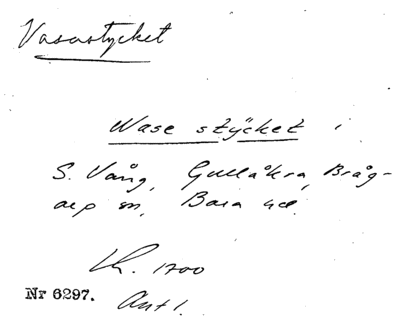 Vasastycket
Wase stÿcket i
S. Vång, Gullåkra, Bråg-
arp sn, Bara hd.
Lh. 1700
Nr 6297. Ant 1.